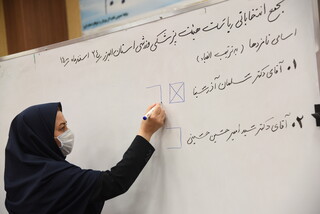 مجمع انتخاباتی ریاست هیئت پزشکی ورزشی استان البرز
اسامی نامزدها (به ترتیب الفبا)
۰۱ آقای دکتر سلمان آذرسینا
۰۲ آقای دکتر سید امیر حسین حسینی